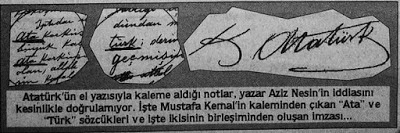 Ata
büyük
Ata
olan,
Türk:
geçmişin
K. Atatürk
Atatürk'ün el yazısıyla kaleme aldığı notlar, yazar Aziz Nesin'in iddiasını
kesinlikle doğrulamıyor. İşte Mustafa Kemal'in kaleminden çıkan "Ata" ve
"Türk" sözcükleri ve işte ikisinin birleşiminden oluşan imzası...